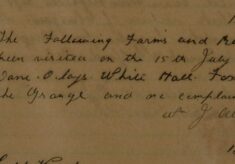 The Following Farms and R
been visited on the 15th July
Lane. Clays White Hall. Fo
the Grange and no complain